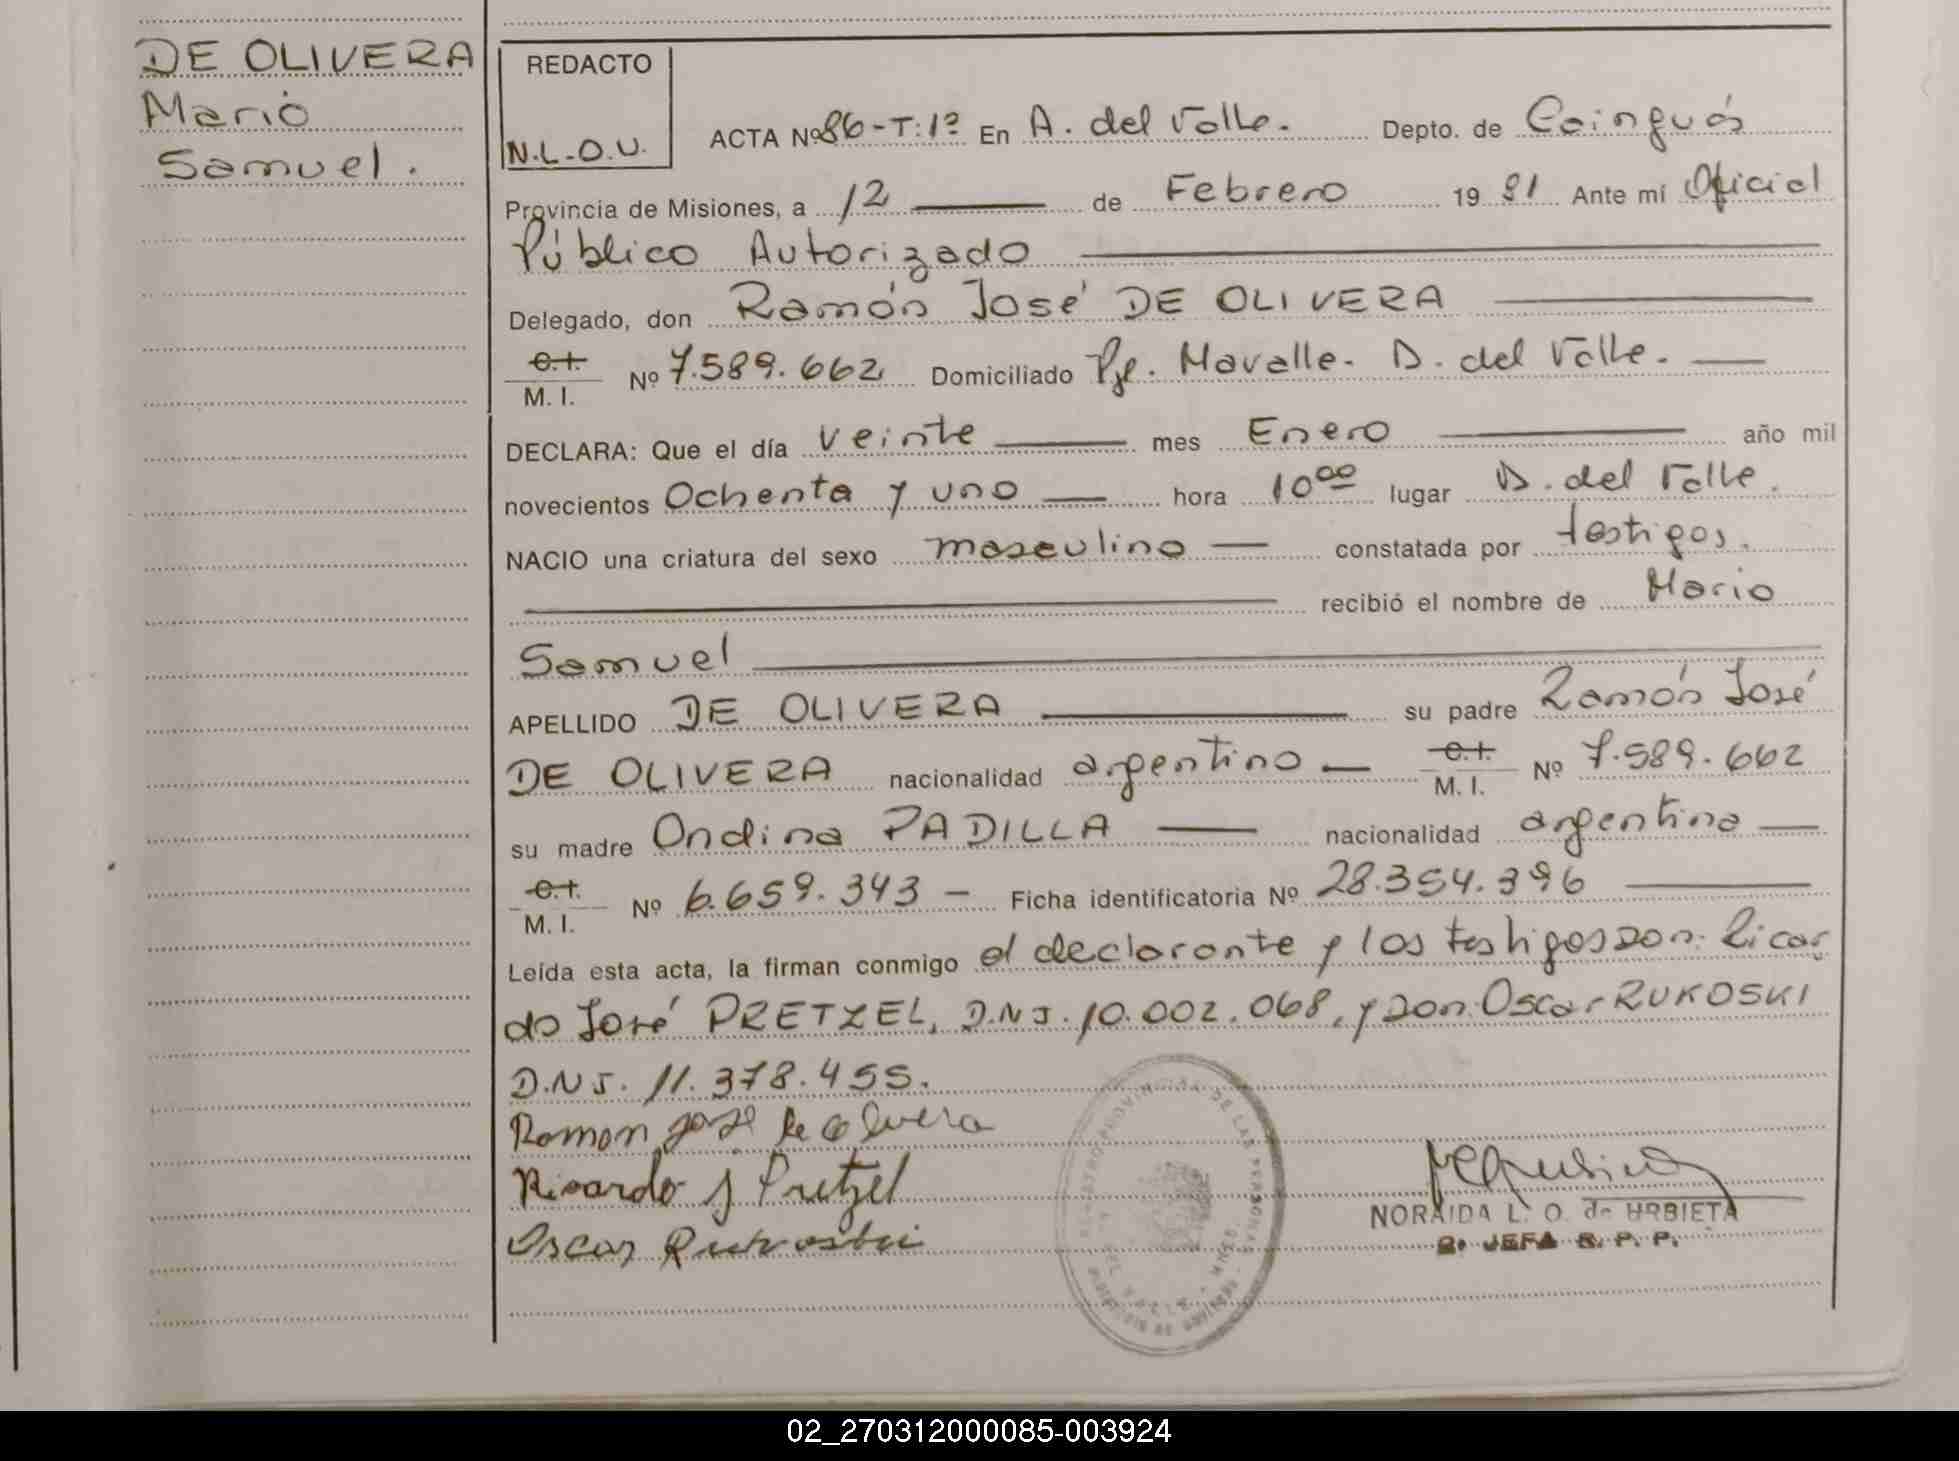 DE OLIVERA
Mario
Samuel.
REDACTO
N.L.O.U.
ACTA Nº 86-T:1º En A. del Valle. Depto. de Cainguás
Provincia de Misiones, a 12 de Febrero 19 81 Ante mí Oficial
Público Autorizado
Delegado, don Ramón José DE OLIVERA
C.I. M.I. Nº 7.589.662 Domiciliado Pje. Mavalle. A. del Valle.
DECLARA: Que el día veinte mes Enero año mil
novecientos Ochenta y uno hora 10ºº lugar A. del Valle.
NACIO una criatura del sexo masculino constatada por testigos.
recibió el nombre de Mario
Samuel
APELLIDO DE OLIVERA su padre Ramón José
DE OLIVERA nacionalidad argentino C.I. M.I. Nº 7.589.662
su madre Ondina PADILLA nacionalidad argentina
C.I. M.I. Nº 6.659.343 - Ficha identificatoria Nº 28.354.396
Leída esta acta, la firman conmigo el declarante y los testigos don: Ricar
do José PRETZEL, D.N.I. 10.002.068, y Don Oscar RUKOSKI
D.N.I. 11.378.455.
Ramon José de Olivera
Ricardo J Pretzel
Oscar Rukoski
PROVINCIAL DE LAS PERSONAS
NORAIDA L. O. de URBIETA
JEFA R. P. P.
02_270312000085-003924